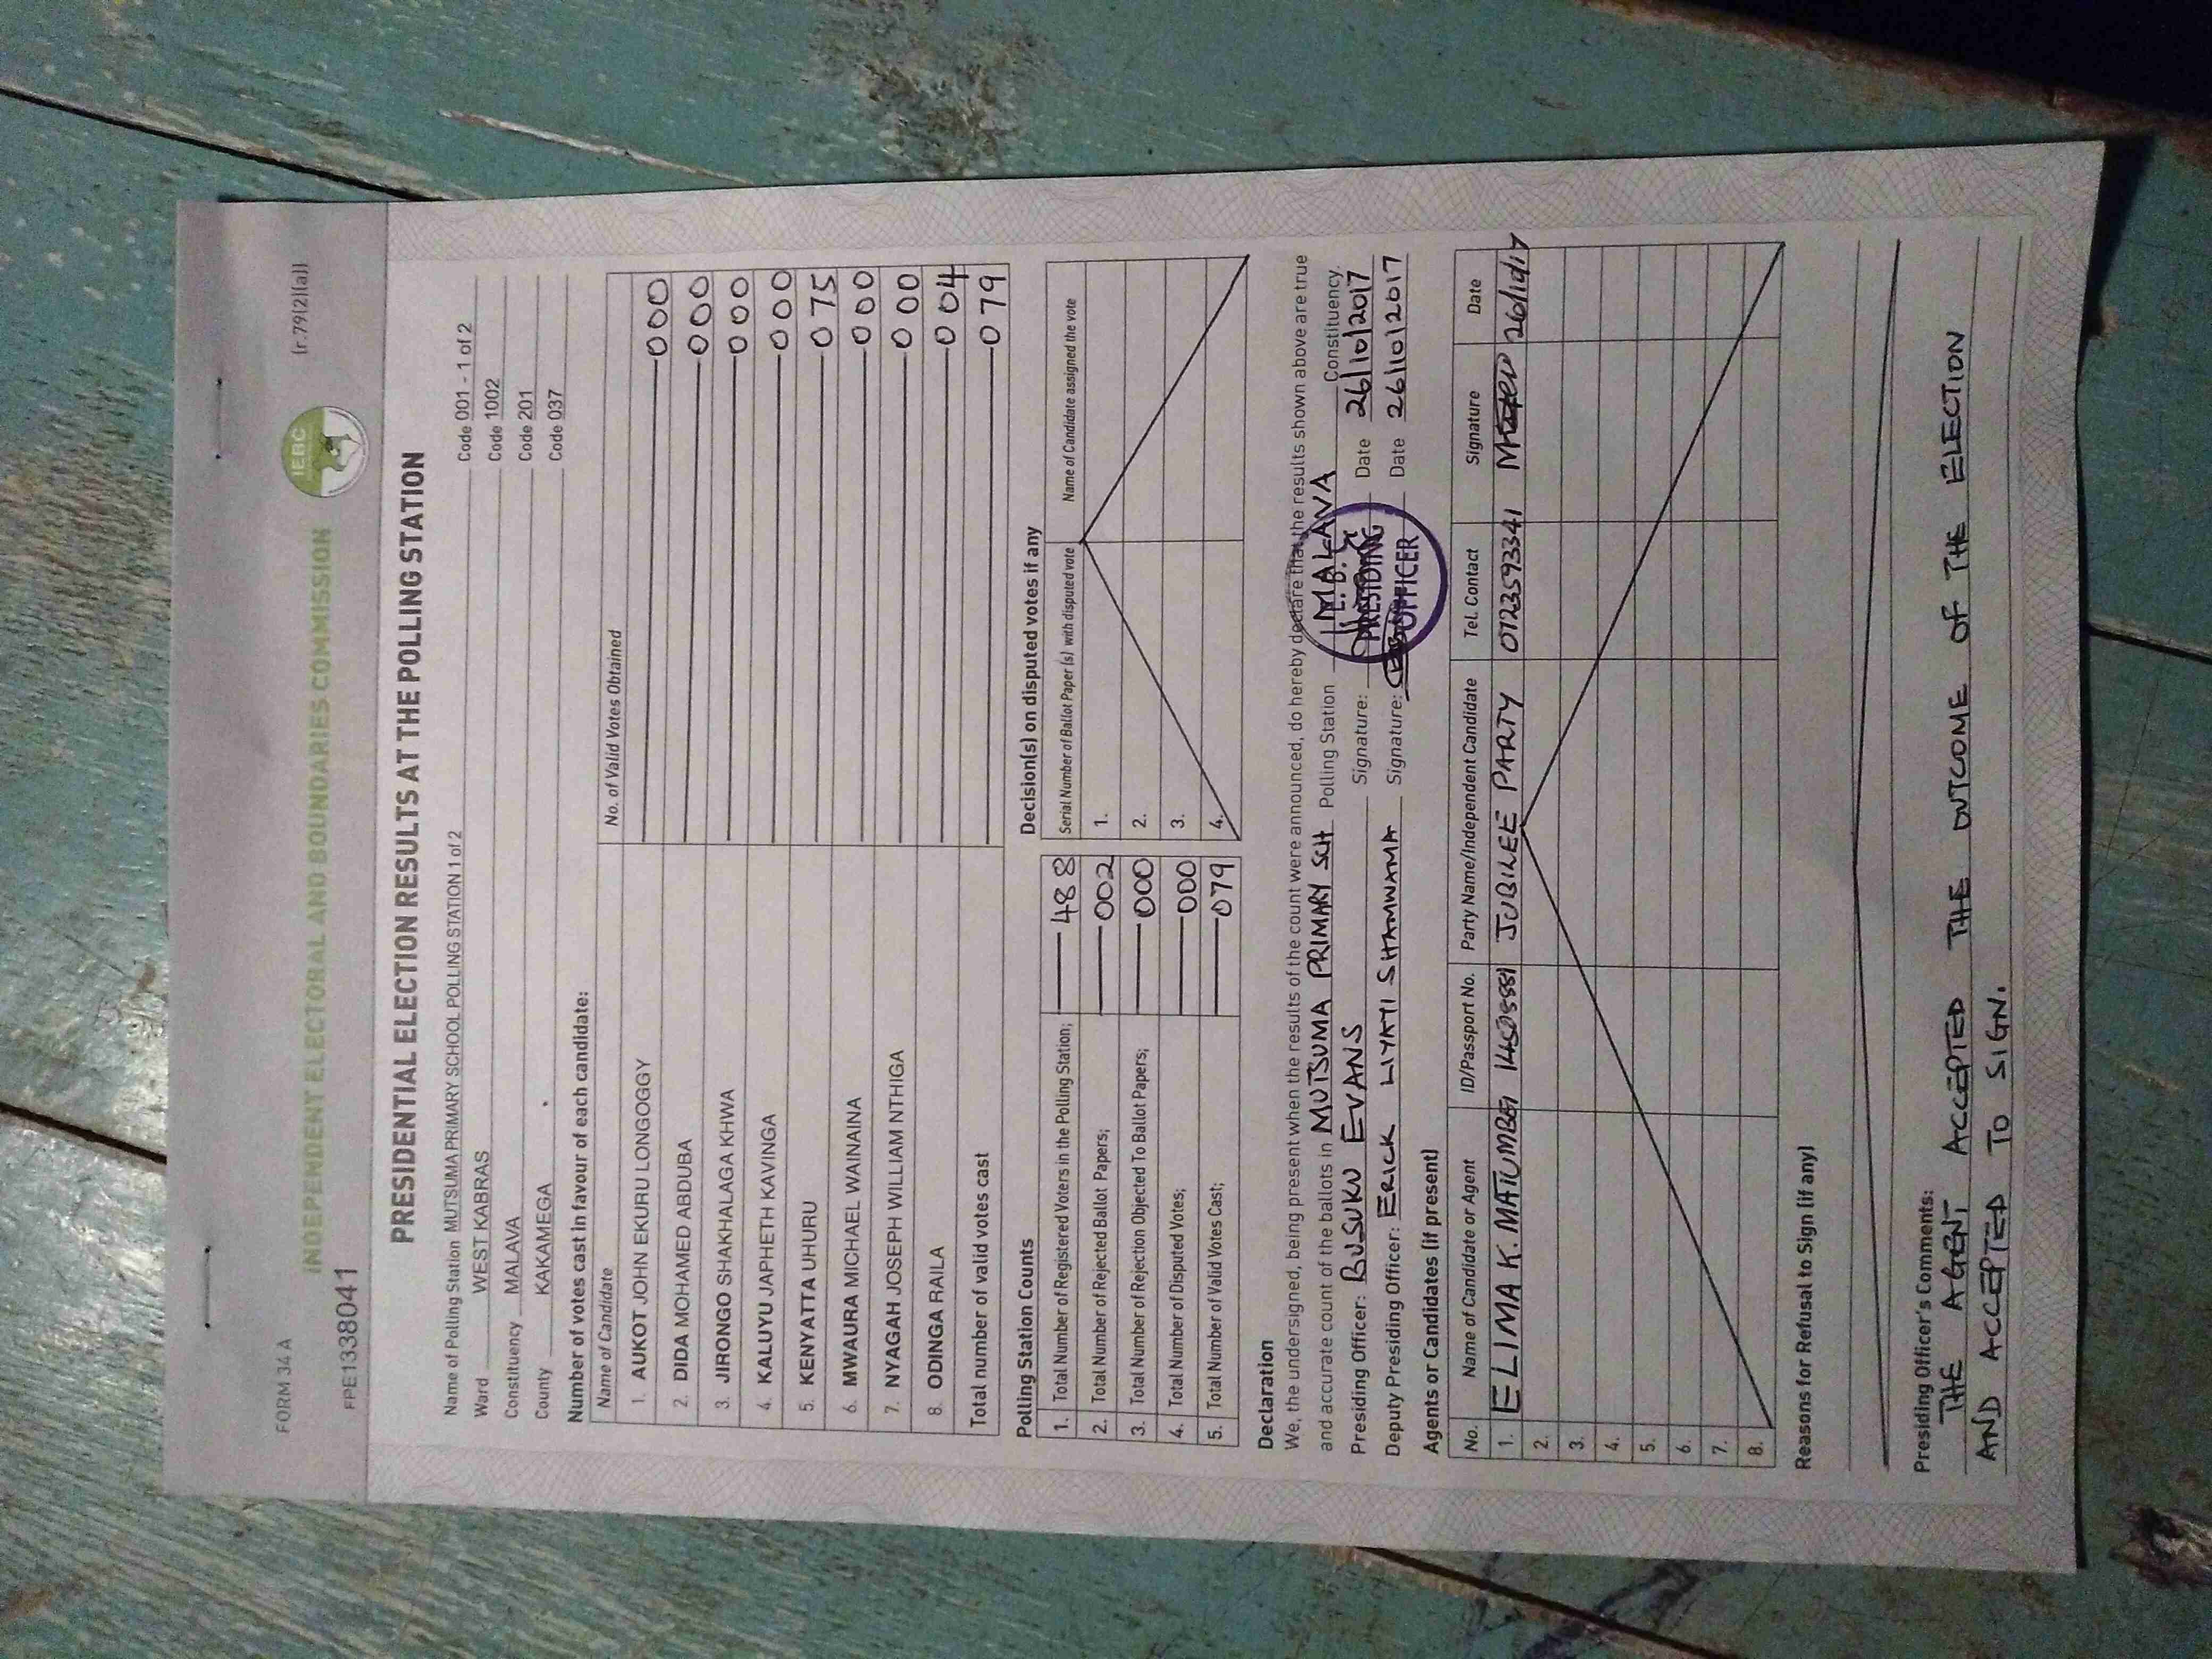 FORM 34 A
(r.79(2)(a))
IEBC
INDEPENDENT ELECTORAL AND BOUNDARIES COMMISSION
FPE1338041
PRESIDENTIAL ELECTION RESULTS AT THE POLLING STATION
Name of Polling Station MUTSUMA PRIMARY SCHOOL POLLING STATION 1 of 2 Code 001 - 1 of 2
Ward WEST KABRAS Code 1002
Constituency MALAVA Code 201
County KAKAMEGA Code 037
Number of votes cast in favour of each candidate:
Name of Candidate No. of Valid Votes Obtained
1. AUKOT JOHN EKURU LONGOGGY 000
2. DIDA MOHAMED ABDUBA 000
3. JIRONGO SHAKHALAGA KHWA 000
4. KALUYU JAPHETH KAVINGA 000
5. KENYATTA UHURU 075
6. MWAURA MICHAEL WAINAINA 000
7. NYAGAH JOSEPH WILLIAM NTHIGA 000
8. ODINGA RAILA 004
Total number of valid votes cast 079
Polling Station Counts
1. Total Number of Registered Voters in the Polling Station; 488
2. Total Number of Rejected Ballot Papers; 002
3. Total Number of Rejection Objected To Ballot Papers; 000
4. Total Number of Disputed Votes; 000
5. Total Number of Valid Votes Cast; 079
Decision(s) on disputed votes if any
Serial Number of Ballot Paper (s) with disputed vote Name of Candidate assigned the vote
1.
2.
3.
4.
Declaration
We, the undersigned, being present when the results of the count were announced, do hereby declare that the results shown above are true
and accurate count of the ballots in MUTSUMA PRIMARY SCH Polling Station MALAVA Constituency.
Presiding Officer: BUSUKU EVANS Signature: Date 26/10/2017
Deputy Presiding Officer: ERICK LIYATI SHAMWAMA Signature: Date 26/10/2017
PRESIDING
OFFICER
Agents or Candidates (if present)
No. Name of Candidate or Agent ID/Passport No. Party Name/Independent Candidate Tel. Contact Signature Date
1. ELIMA K. MATUMBEI JUBILEE PARTY 0723593341
2.
3.
4.
5.
6.
7.
8.
Reasons for Refusal to Sign (if any)
Presiding Officer's Comments:
THE AGENT ACCEPTED THE OUTCOME OF THE ELECTION
AND ACCEPTED TO SIGN.